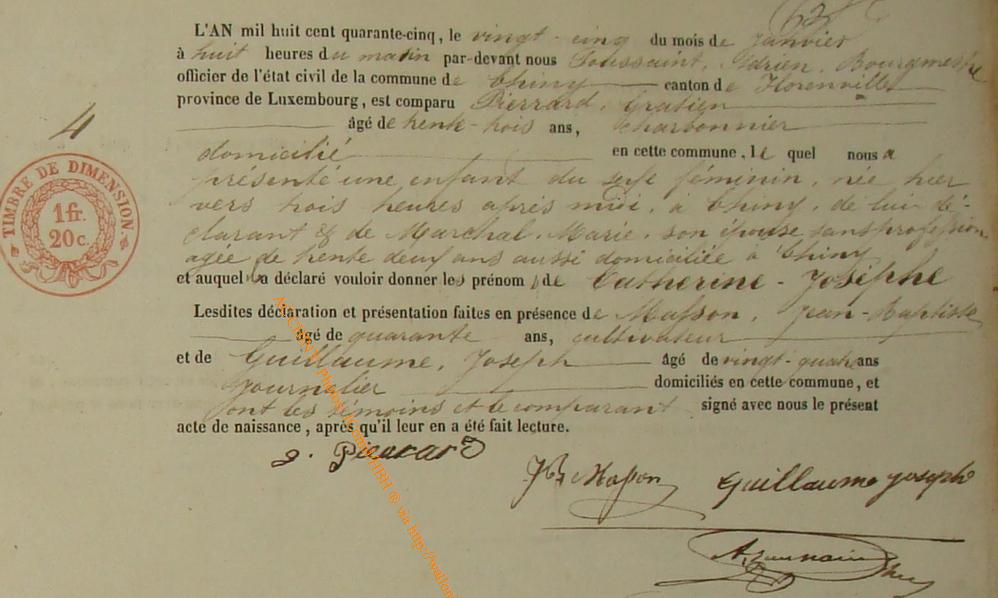 L'AN mil huit cent quarante-cinq, le vingt-cinq du mois de Janvier
à huit heures du matin par-devant nous Toussaint, Adrien, Bourgmestre
officier de l'état civil de la commune de Chiny canton de Florenville
province de Luxembourg, est comparu Pierrard, Gratien
4
âgé de trente-trois ans, charbonnier
domicilié en cette commune, le quel nous a
présenté une enfant du sexe féminin, née hier
vers trois heures après midi, à Chiny, de lui dé-
clarant & de Marchal, Marie, son épouse sans profession
agée de trente deux ans aussi domiciliée à Chiny
et auquel a déclaré vouloir donner les prénom de Catherine-Josephe
Lesdites déclaration et présentation faites en présence de Masson, Jean-Baptiste
âgé de quarante ans, cultivateur
et de Guillaume, Joseph âgé de vingt-quatre ans
Journalier domiciliés en cette commune, et
ont les témoins et le comparant signé avec nous le présent
acte de naissance, après qu'il leur en a été fait lecture.
g. Pierrard
JB Masson Guillaume Joseph
TIMBRE DE DIMENSION
1 fr.
20 c.